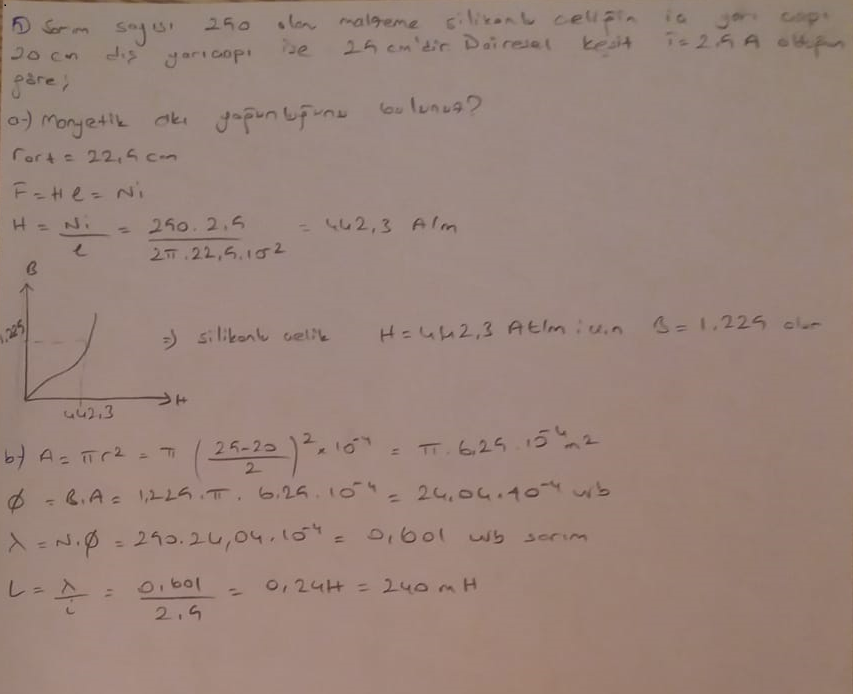 5) Sarım sayısı 250 olan malzeme silikonlu çeliğin iç yarı çapı
20 cm dış yarıçapı ise 25 cm'dir. Dairesel kesit i=2.5 A olduğuna
göre;
a-) Manyetik akı yoğunluğunu bulunuz?
rort = 22,5 cm
F = Hl = Ni
H = Ni/l = 250.2,5 / 2π.22,5.10^-2 = 442,3 A/m
B
1.225
⇒) silikonlu çelik H=442,3 At/m için B=1.225 olur
H
442,3
b-) A = πr² = π (25-20/2)² × 10^-4 = π.6,25.10^-4 m2
Ø = B.A = 1,225.π.6,25.10^-4 = 24,04.10^-4 wb
λ = N.Ø = 250.24,04.10^-4 = 0,601 wb sarım
L = λ/i = 0,601/2,5 = 0,24H = 240 mH